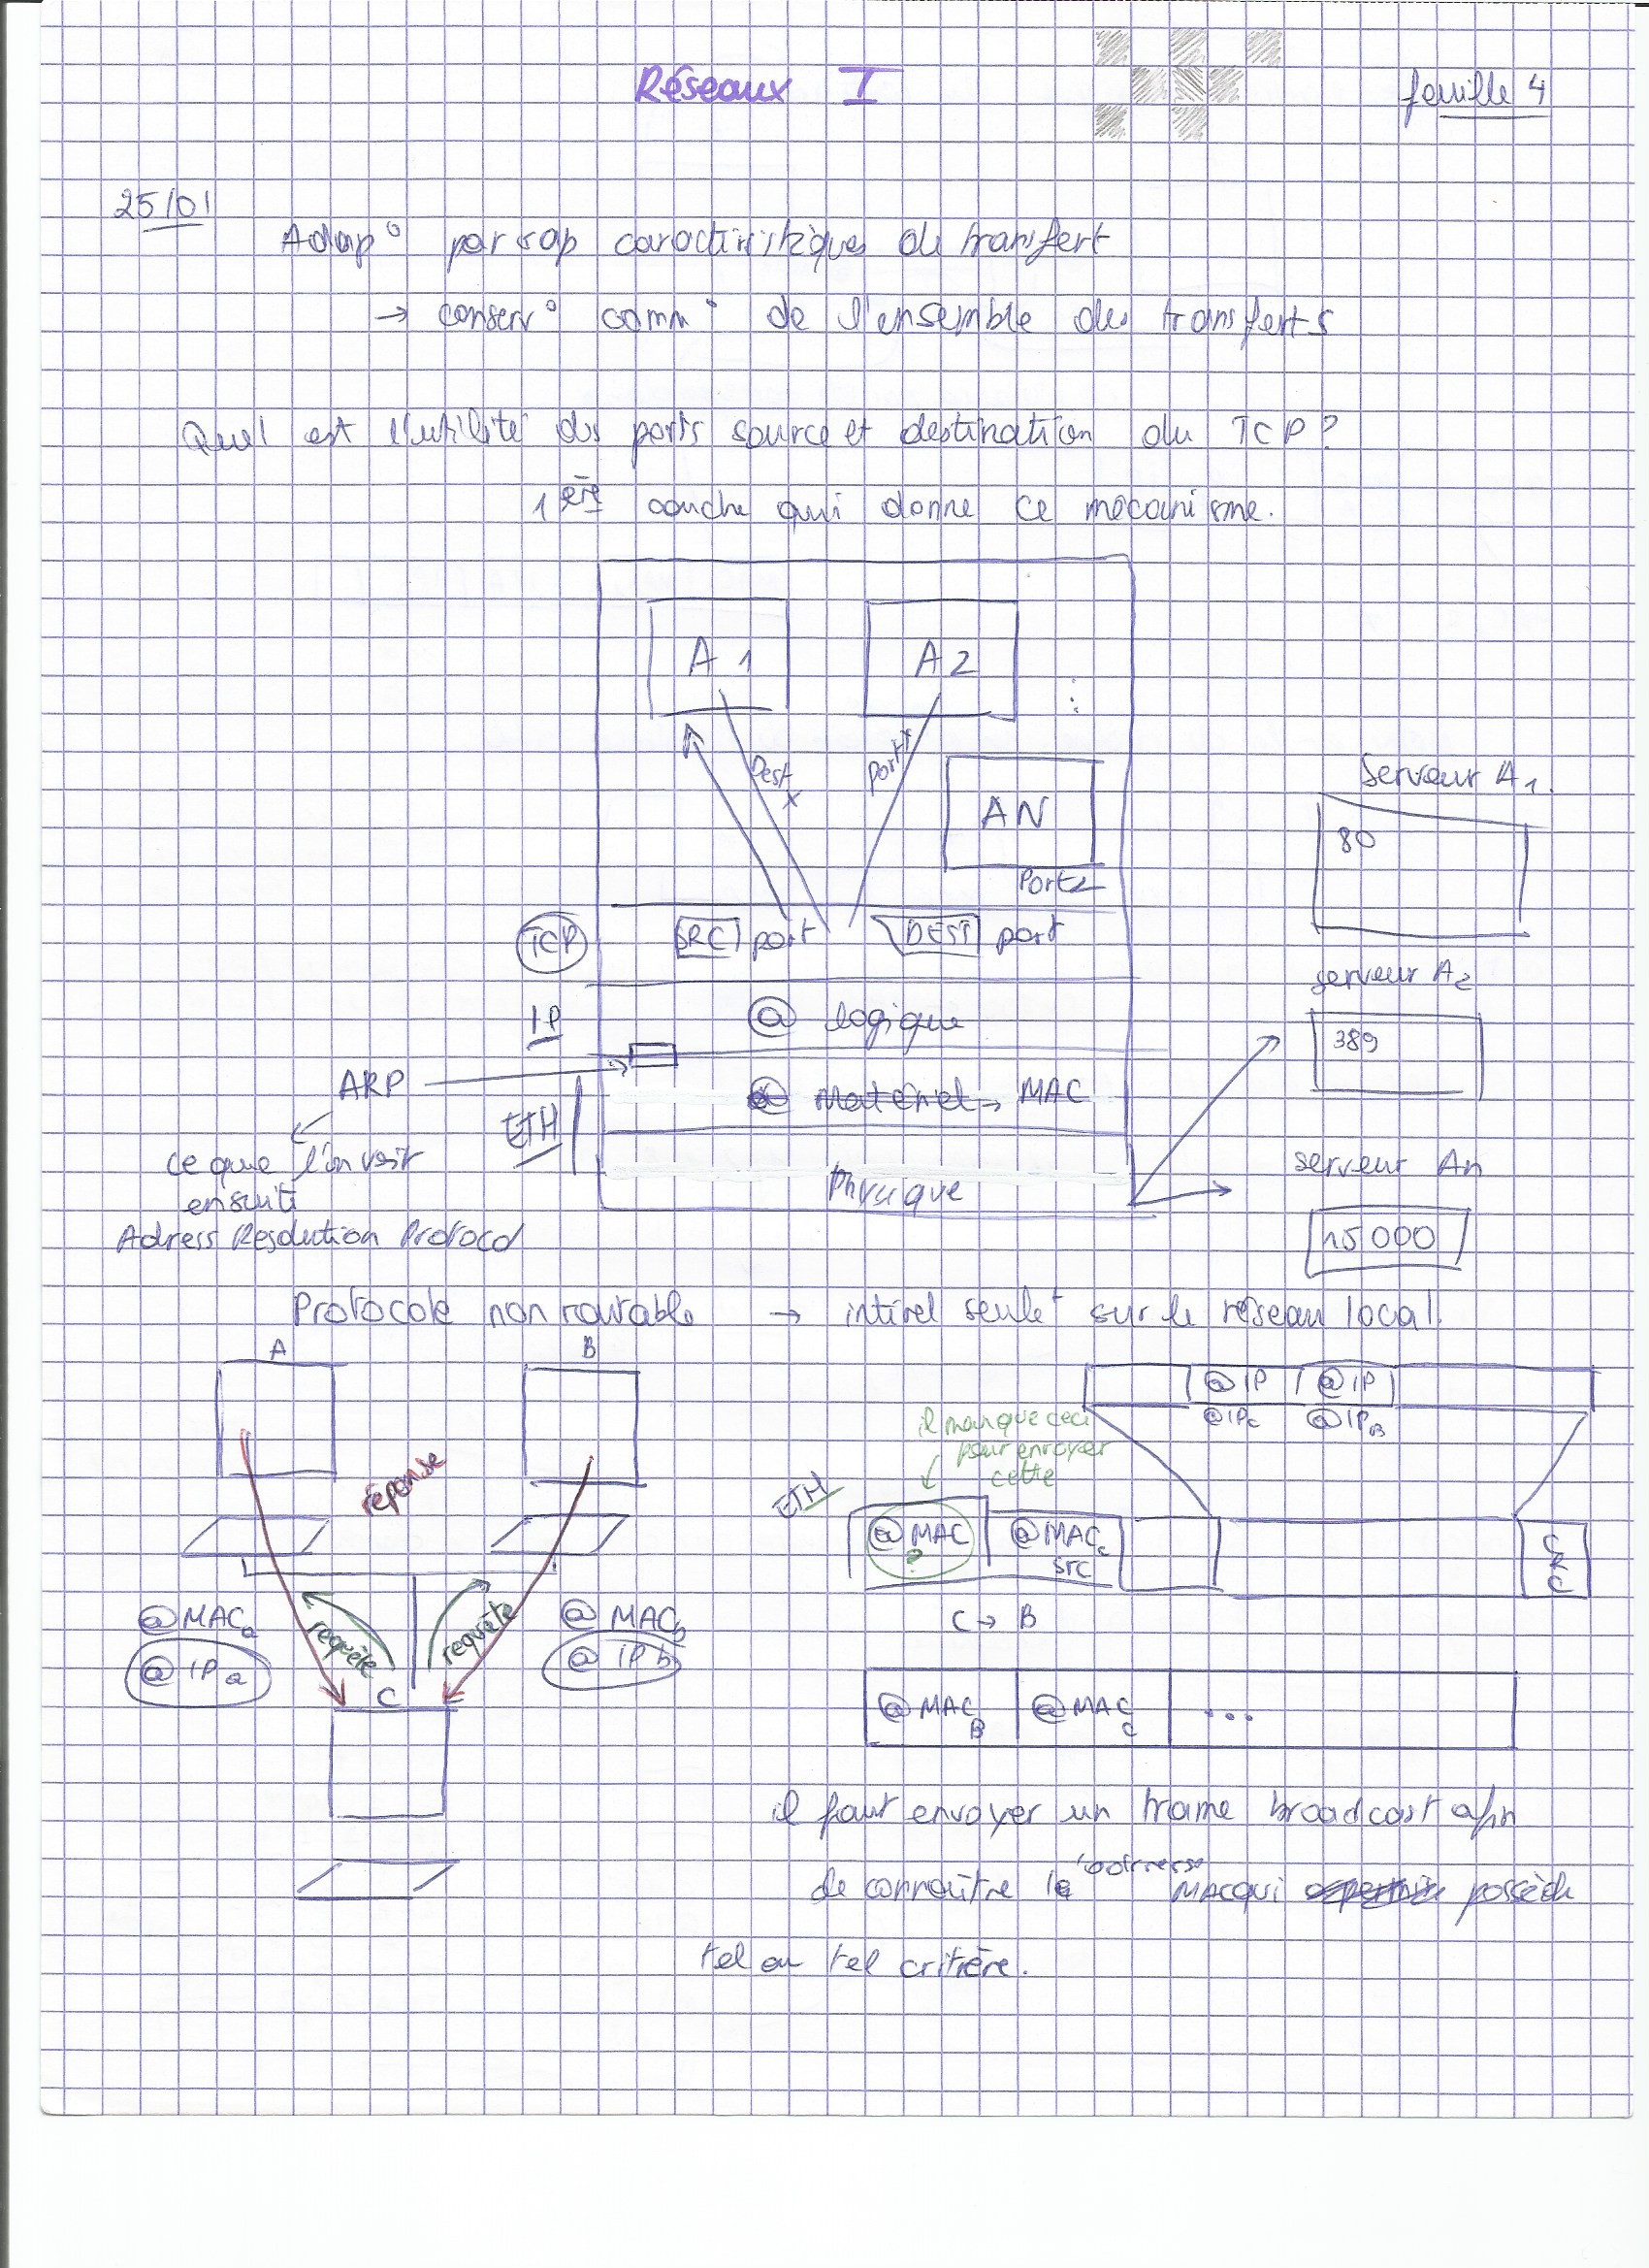 Réseaux I
feuille 4
25/01
Adap° par rap caractéristiques de transfert
→ conserv° comm° de l'ensemble des transferts
Quel est l'utilité des ports source et destination du TCP?
1ère couche qui donne ce mécanisme.
A1
A2
Dest
x
port
AN
Port2
Serveur A1.
80
TCP
SRC port
DEST port
serveur A2
389
IP
@ logique
ARP
@ Matériel → MAC
ETH
ce que l'on voit
ensuite
Adress Resolution Protocol
Physique
serveur An
15000
Protocole non routable → intérêt seulet sur le réseau local.
A
B
réponse
@MACa
@IPa
requête
requête
@MACb
@IPb
C
@IP
@IP
@IPc
@IPB
il manque ceci
pour envoyer
cette
ETH
@MAC
?
@MACc
src
CRC
C → B
@MACB
@MACc
...
il faut envoyer un trame broadcast afin
de connaître le MAC qui possède
tel ou tel critère.